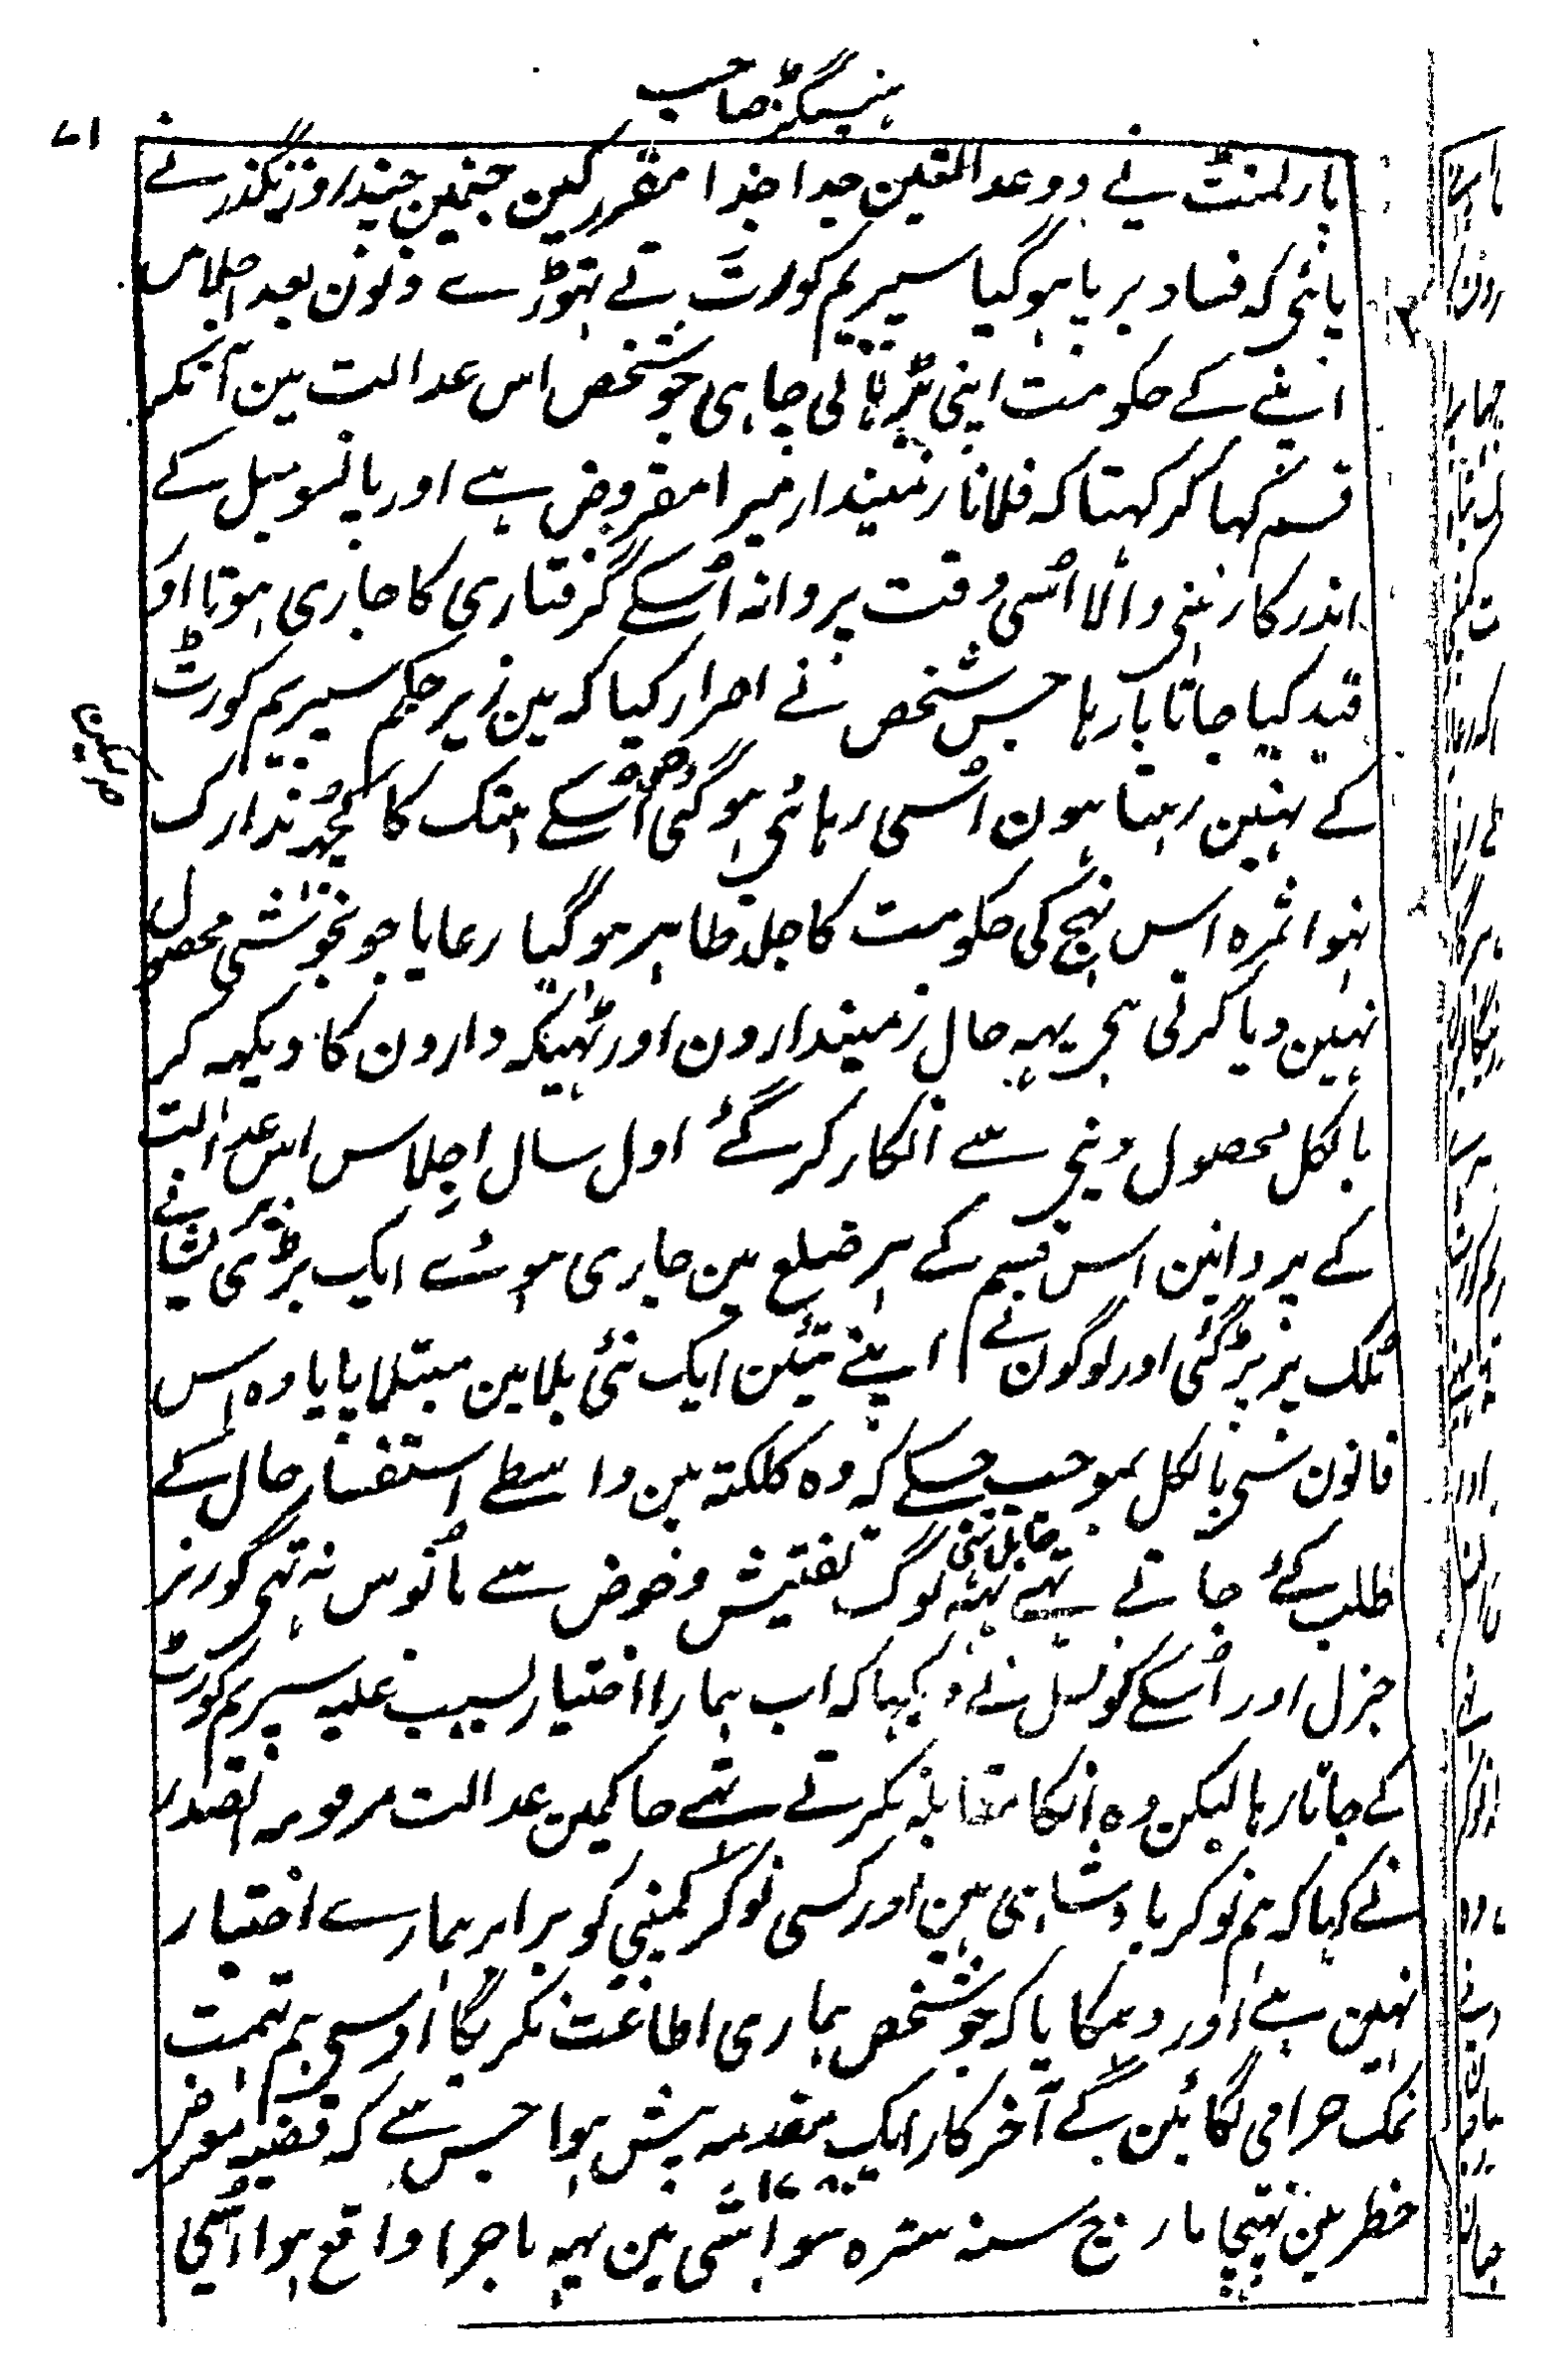 ہنیسٹگز صاحب
۷۱
پارلمنٹ نے دو عدالتین جدا جدا مقرر کین جنمین چند روز نگذرنے
پائی کہ فساد برپا ہو گیا سپریم کورٹ نے تہوڑے دنون بعد اجلاس
اپنے کے حکومت اپنی بڑہانی چاہی جو شخص اس عدالت مین آنکر
قسم کہا کر کہتا کہ فلانا زمیندار میرا مقروض ہے اور پانسو میل کے
اندر کا رہنی والا اسی وقت پروانہ اُسکے گرفتاری کا جاری ہوتا اور
قید کیا جاتا بارہا جس شخص نے اصرار کیا کہ مین زیر حکم سپریم کورٹ
کے نہین رہتا ہون اُسی رہائی ہو گئی اُسکے ہتک کا کچھ تدارک
نہوا ثمرہ اس نہج کی حکومت کا جلد ظاہر ہو گیا رعایا جو بخوشی محصول
نہین دیا کرتی ہی یہہ حال زمیندارون اور ٹہیکہ دارون کا دیکہہ کر
بالکل محصول دینی سے انکار کر گئے اول سال اجلاس اس عدالت
کے پروانین اس قسم کے ہر ضلع مین جاری ہوئے ایک بڑی پریشانی
ملک پر پڑ گئی اور لوگون نے اپنے تئین ایک نئی بلا مین مبتلا پایا وہ اس
قانون سی بالکل بموجب جسکے کہ وہ کلکتہ مین واسطے استفسار حال کے
طلب کئے جاتے تہے لوگ تفتیش و خوض سے مانوس نہ تہی گورنر
جنرل اور اُسکے کونسل نے دیکہا کہ اب ہمارا اختیار بسبب غلبہ سپریم کورٹ
کے جاتا رہا لیکن وہ انکا مقابلہ نکرتے تہے حاکمین عدالت مرقومہ الصدر
نے کہا کہ ہم نوکر بادشاہی ہین اور کسی نوکر کمپنی کو برابر ہمارے اختیار
نہین ہے اور دہمکایا کہ جو شخص ہماری اطاعت نکریگا اوسی ہم تہمت
نمک حرامی لگائین گے آخر کار ایک مقدمہ پیش ہوا جس سے کہ قضیہ معرض
خطر مین پہنچا مارچ سنہ سترہ سو اسّی مین یہہ ماجرا واقع ہوا اُسی